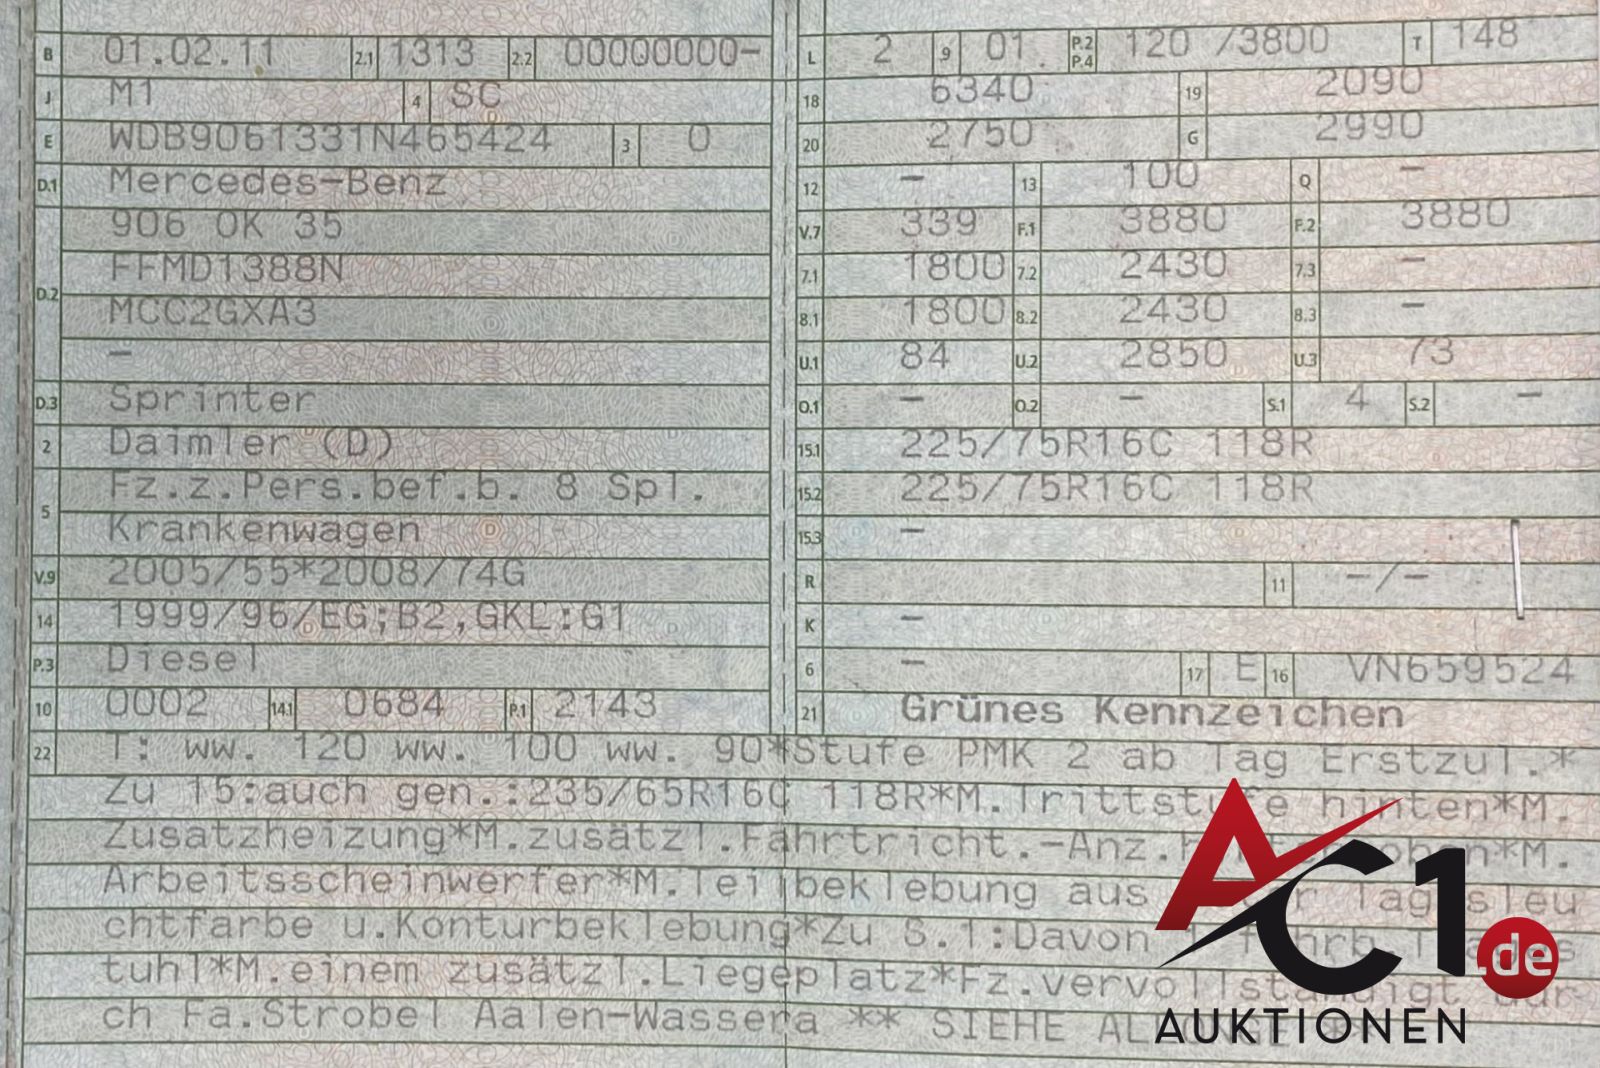 B 01.02.11 2.1 1313 2.2 00000000-
J M1 4 SC
E WDB9061331N465424 3 0
D.1 Mercedes-Benz
906 OK 35
D.2 FFMD1388N
MCC2GXA3
-
D.3 Sprinter
2 Daimler (D)
5 Fz.z.Pers.bef.b. 8 Spl.
Krankenwagen
V.9 2005/55*2008/74G
14 1999/96/EG;B2,GKL:G1
P.3 Diesel
10 0002 14.1 0684 P.1 2143
L 2 9 01 P.2 P.4 120 /3800 T 148
18 6340 19 2090
20 2750 G 2990
12 - 13 100 Q -
V.7 339 F.1 3880 F.2 3880
7.1 1800 7.2 2430 7.3 -
8.1 1800 8.2 2430 8.3 -
U.1 84 U.2 2850 U.3 73
O.1 - O.2 - S.1 4 S.2 -
15.1 225/75R16C 118R
15.2 225/75R16C 118R
15.3 -
R 11 -/-
K -
6 - 17 E 16 VN659524
21 Grünes Kennzeichen
22 T: ww. 120 ww. 100 ww. 90*Stufe PMK 2 ab Tag Erstzul.*
Zu 15:auch gen.:235/65R16C 118R*M.Trittstufe hinten*M.
Zusatzheizung*M.zusätzl.Fahrtricht.-Anz.hinten oben*M.
Arbeitsscheinwerfer*M.Teilbeklebung aus Tagesleu
chtfarbe u.Konturbeklebung*Zu S.1:Davon
tuhl*M.einem zusätzl.Liegeplatz*Fz.vervollständigt dur
ch Fa.Strobel Aalen-Wassera ** SIEHE
AC1.de
AUKTIONEN